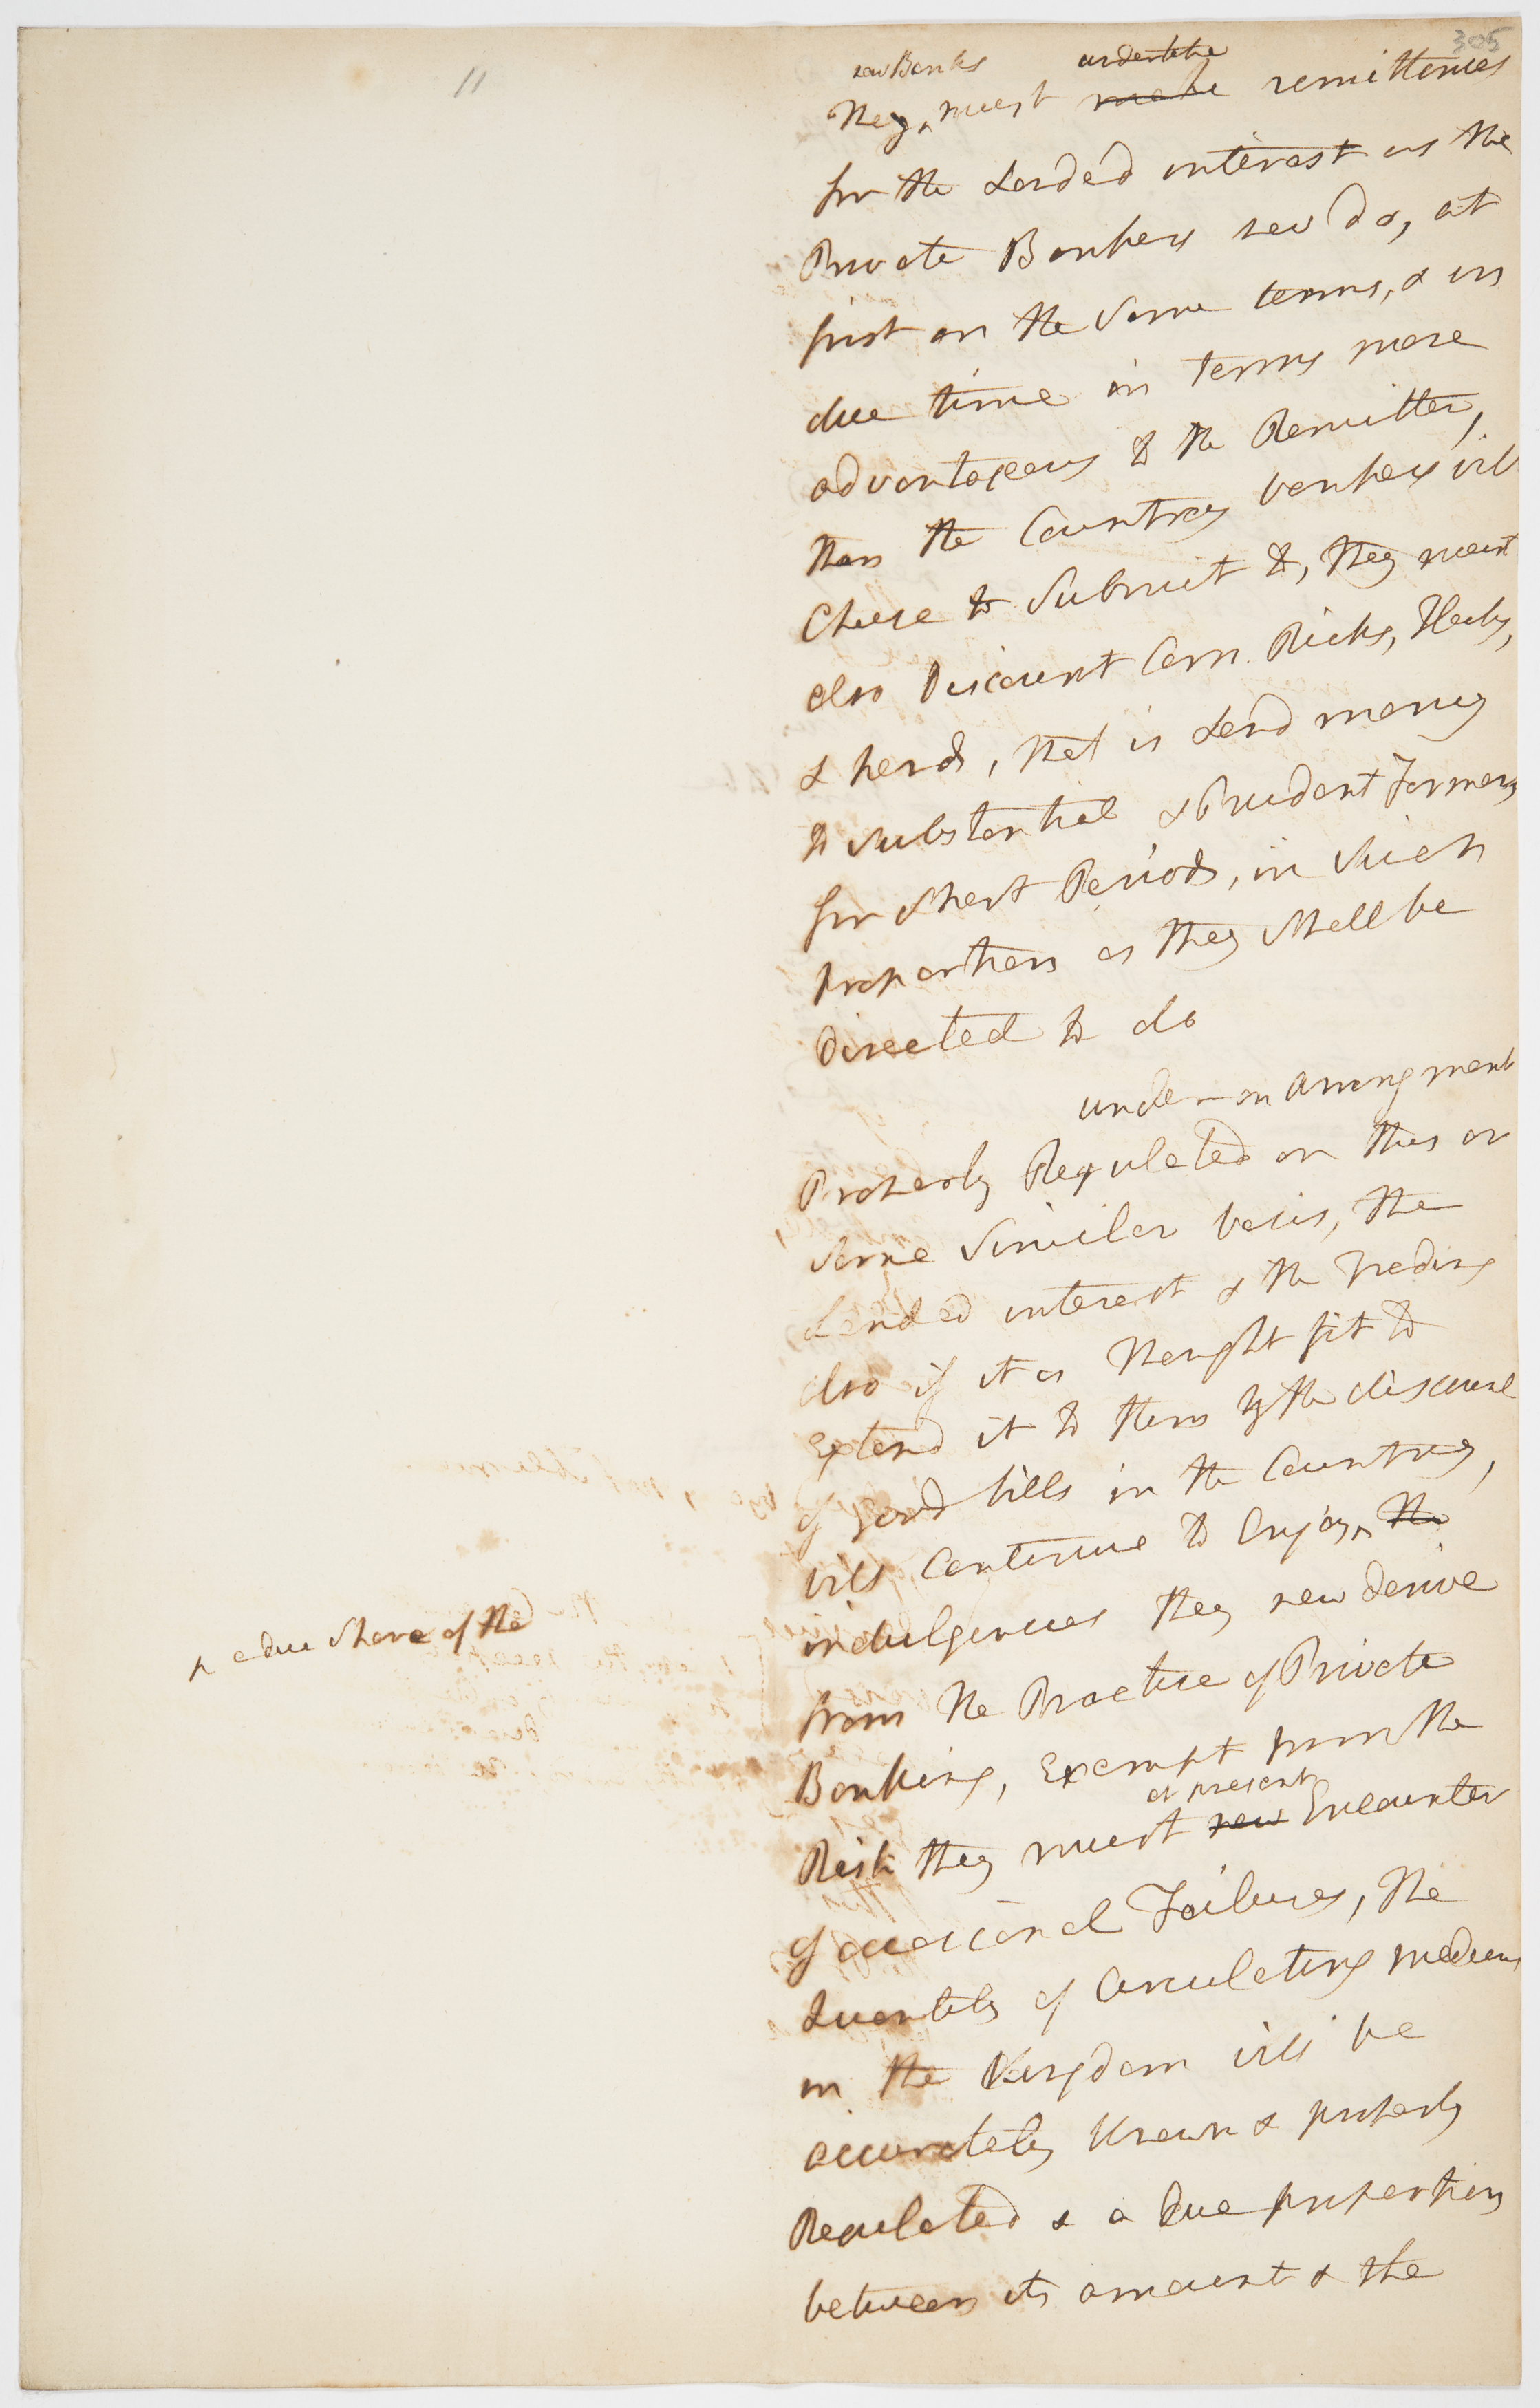 305
11
new Banks undertake
They ^ must make remittences
for the Landed interest as the
Private Bankers now do, at
first on the Same terms, & in
due time on terms more
advantageous to the Remitter,
than the Country bankers will
Chuse to Submit to, they must
also Discount Corn Ricks, Flocks,
& herds, that is Lend money
to Substantial & Prudent Farmers
for Short Periods, in Such
proportions as they Shall be
Directed to do
under an Arrangment
Properly Regulated on this or
Some Similar basis, the
Landed interest & the Trading
also if it is Thought fit to
Extend it to them by the discount
of good bills in the Country,
will Continue to Enjoy ^ the
^ a due Share of the
indulgences they now derive
from the Practice of Private
Banking, Exempt from the
at present
Risk they must now Encounter
of occasional Failures, the
Quantity of Circulating medium
in the Kingdom will be
accurately Known & properly
Regulated & a Due proportion
between its amount & the